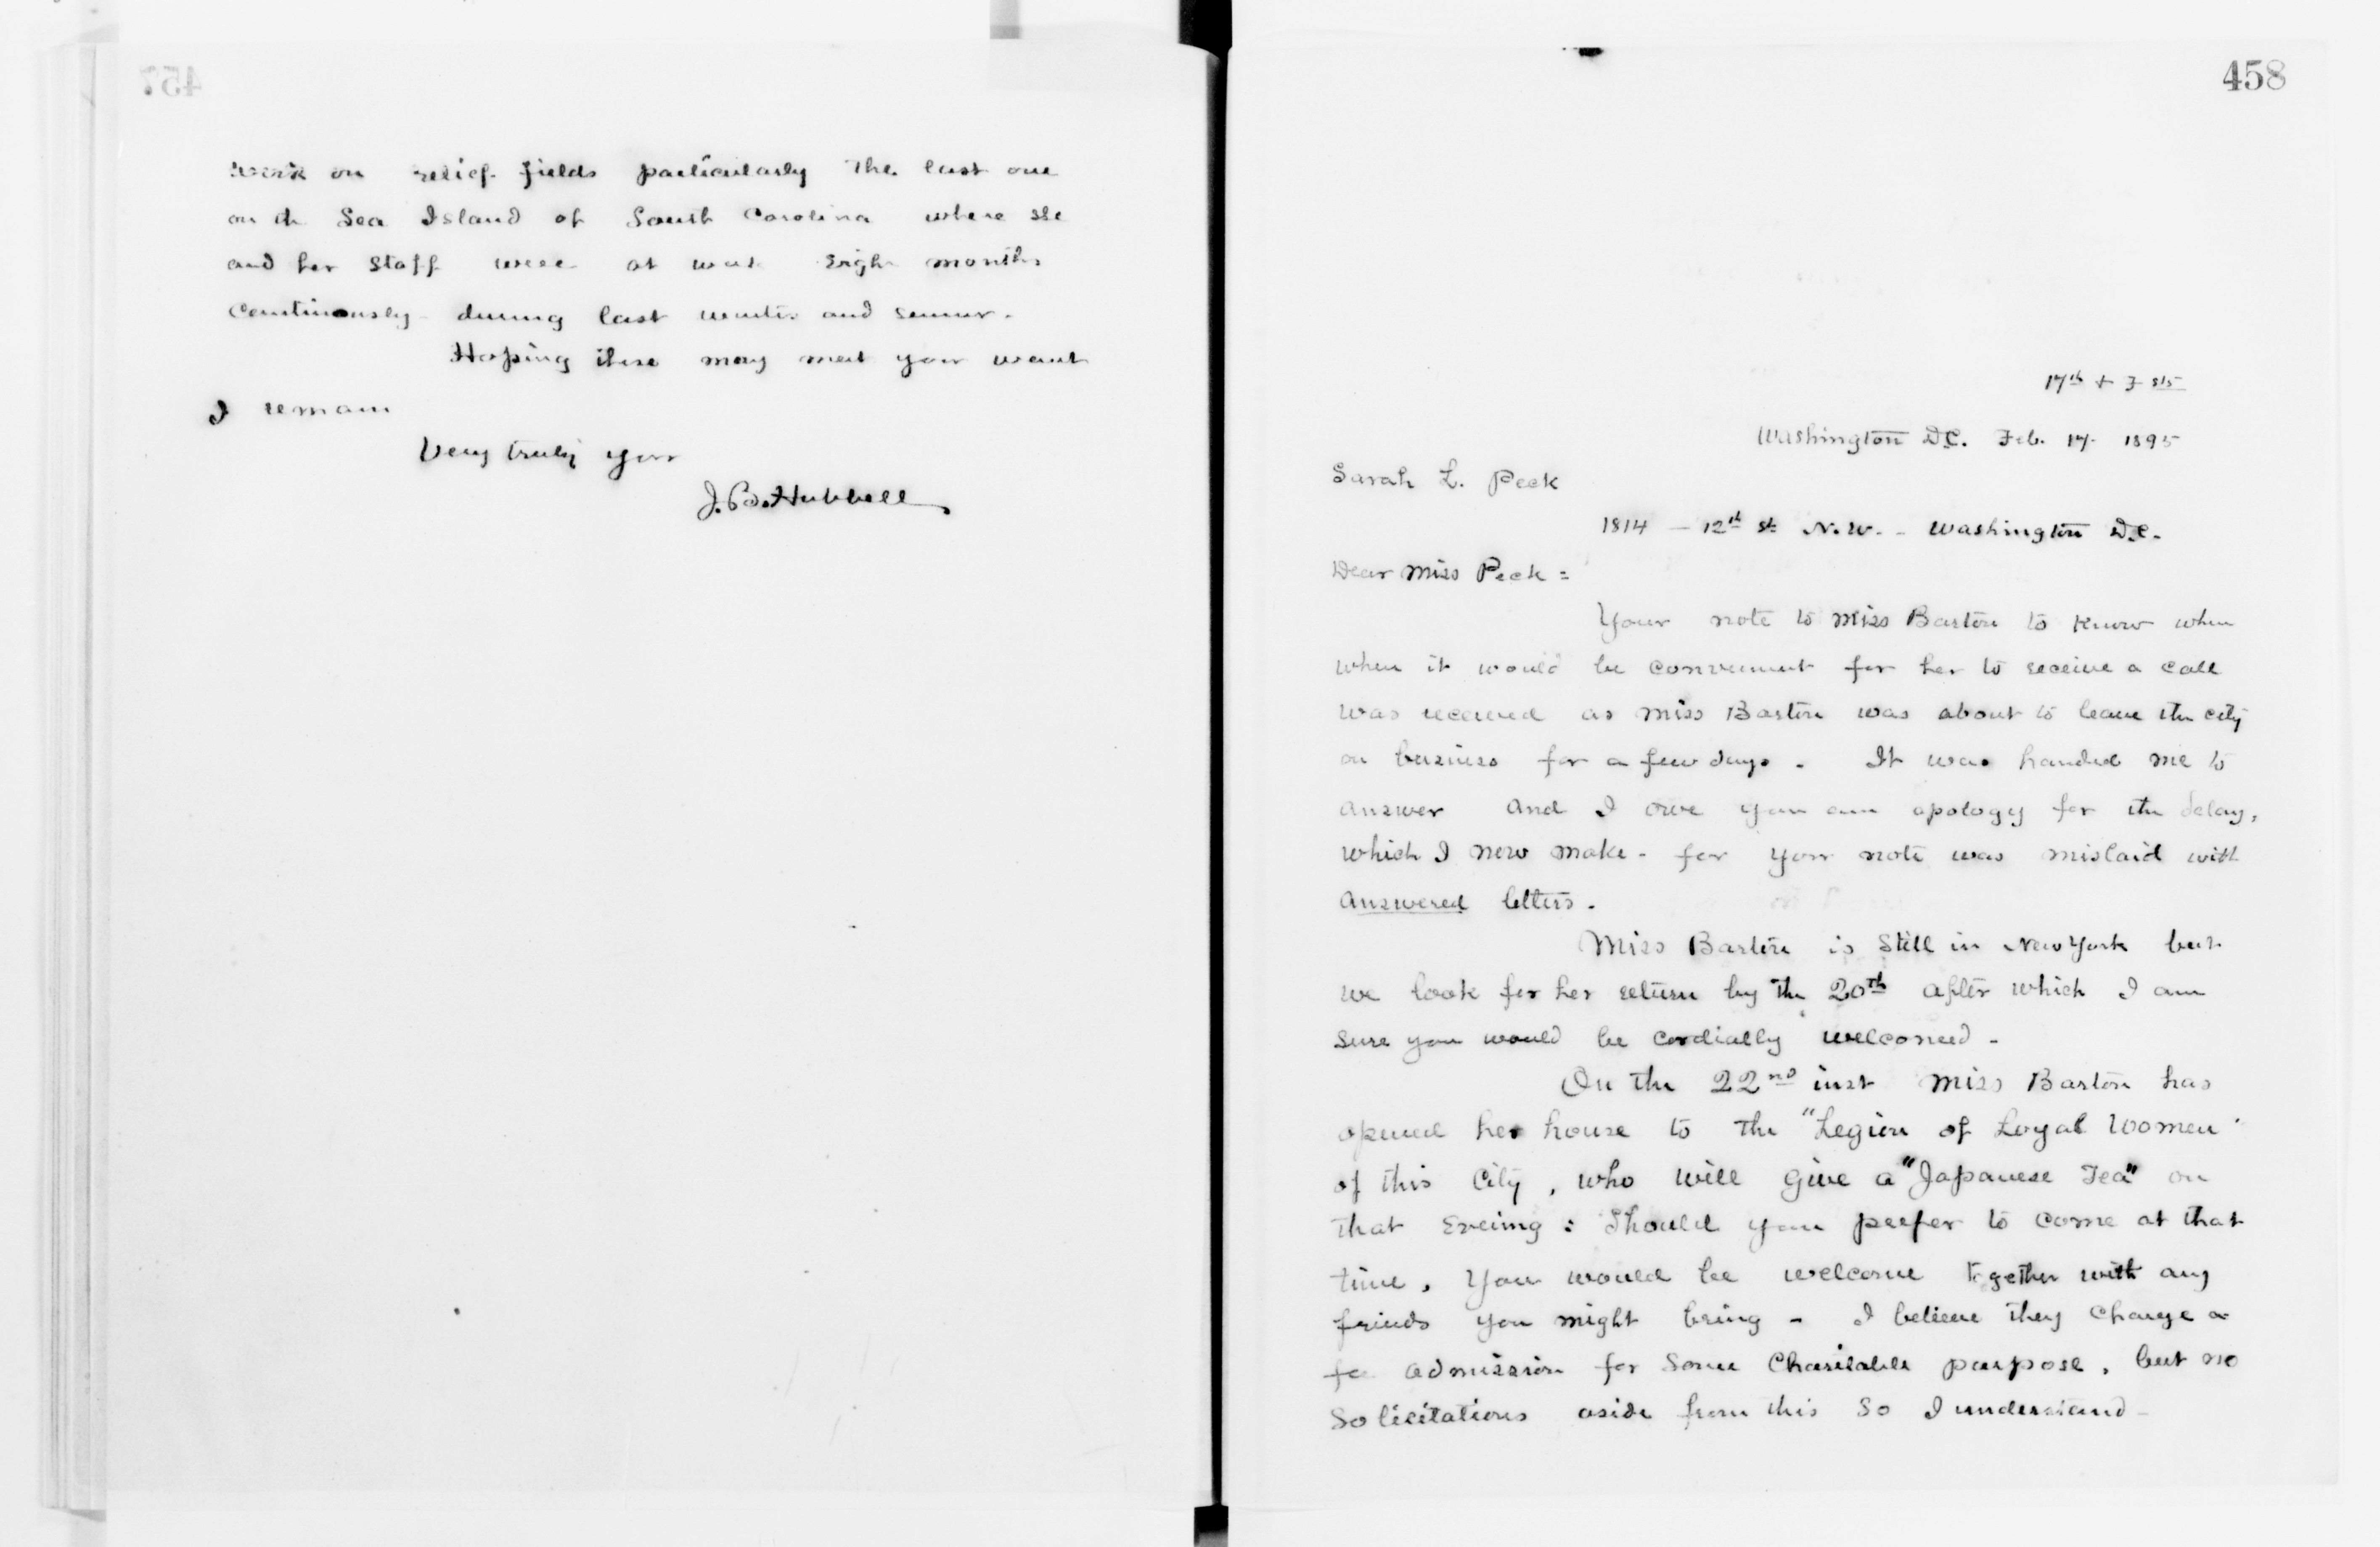 457
work on relief fields particularly the last one
on the Sea Island of South Carolina where she
and her staff were at work eight months
continuously during last winter and summer.
Hoping these may meet your want
I remain
Very truly your
J.B. Hubbell
458
17th + F sts
Washington D.C. Feb. 17. 1895
Sarah L. Peck
1814 - 12th st N.W. - Washington D.C.
Dear Miss Peck =
Your note to Miss Barton to know when
when it would be convenient for her to receive a call
was received as Miss Barton was about to leave the city
on business for a few days. It was handed me to
answer and I owe you an apology for the delay,
which I now make - for your note was mislaid with
answered letters.
Miss Barton is still in New York but
we look for her return by the 20th after which I am
sure you would be cordially welcomed -
On the 22nd inst Miss Barton has
opened her house to the "Legion of Loyal Women"
of this City, who will give a "Japanese Tea" on
that evening: Should you prefer to come at that
time, you would be welcome together with any
friends you might bring - I believe they charge a
fee admission for some charitable purpose, but no
solicitations aside from this so I understand -